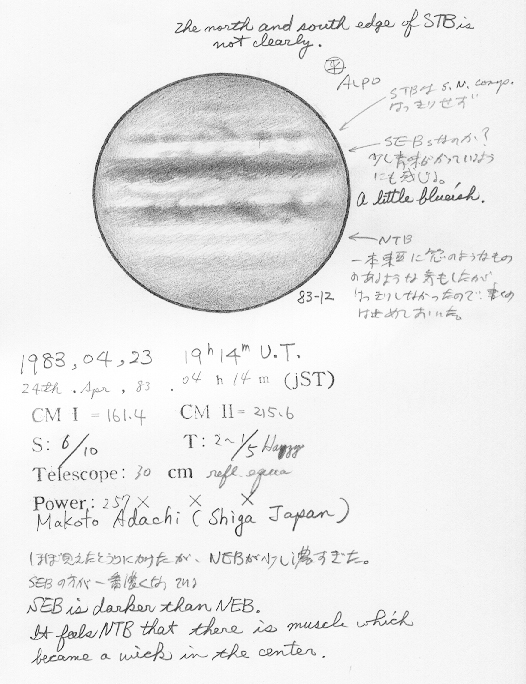 The north and south edge of STB is
not clearly.
平
ALPO
STBは S.N. comp.
はっきりせず
SEBsなのか?
少し青味がかっているよう
にも感じる。
A little blueish.
NTB
一本東西に芯のようなもの
のあるような気もしたが
はっきりしなかったので、書くの
は止めておいた。
83-12
1983,04,23 19h14m U.T.
24th. Apr, 83. 04h14m (JST)
CM I = 161.4 CM II = 215.6
S: 6/10 T: 2~1/5 Hayzy
Telescope: 30 cm refl. equa
Power: 257× × ×
Makoto Adachi (Shiga Japan)
ほぼ見えたとうりにかけたが、NEBが少し濃すぎた。
SEBの方が一番濃くなっている
SEB is darker than NEB.
It feels NTB that there is muscle which
became a wick in the center.